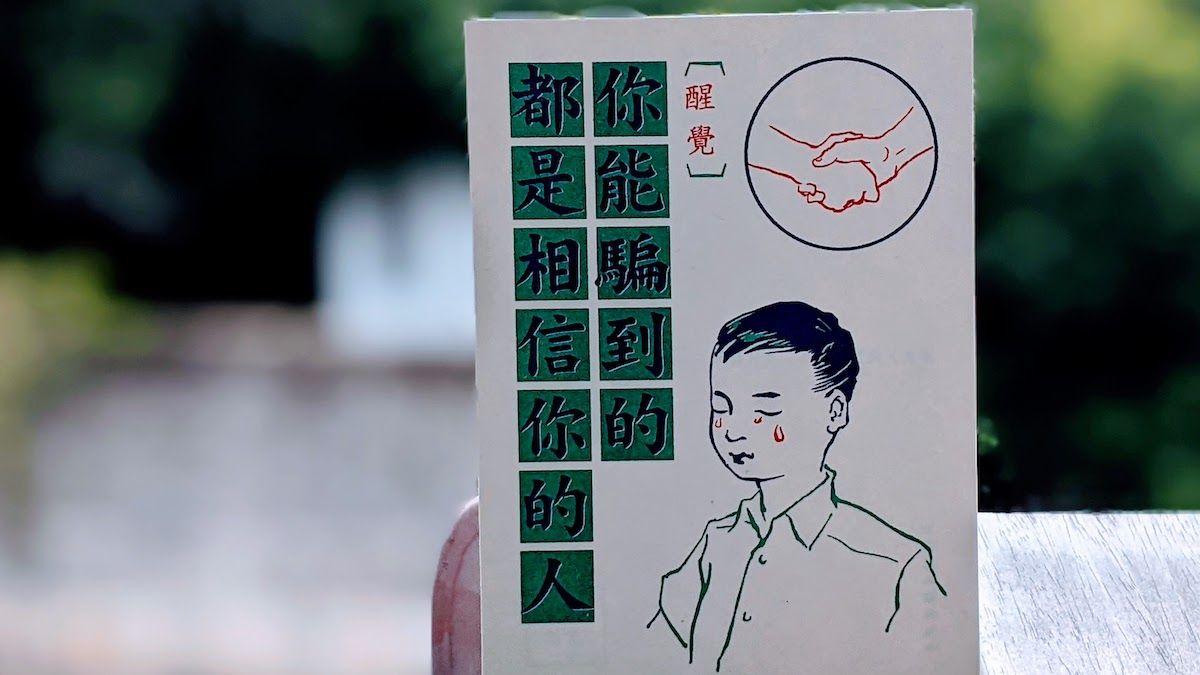 醒覺
你能騙到的
都是相信你的人